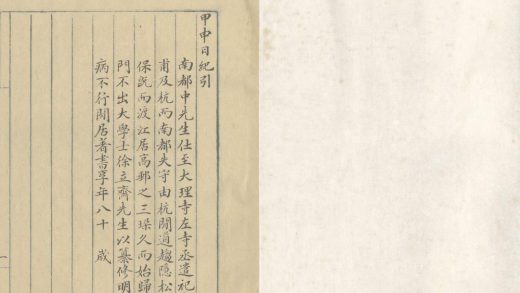 甲申日紀引
南都申先生仕至大理寺左寺丞遣祀
甫及杭而南都失守由杭間道趨隐松
保既而渡江居高郵之三垛久而始歸
門不出大學士徐立齋先生以纂修明
病不行閒居著書享年八十　歲